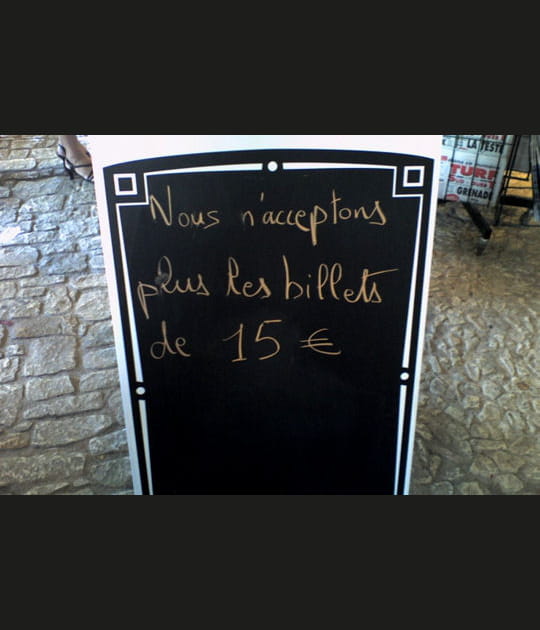 Nous n'acceptons
plus les billets
de 15 €
LA TESTE
TURF
GRENADE